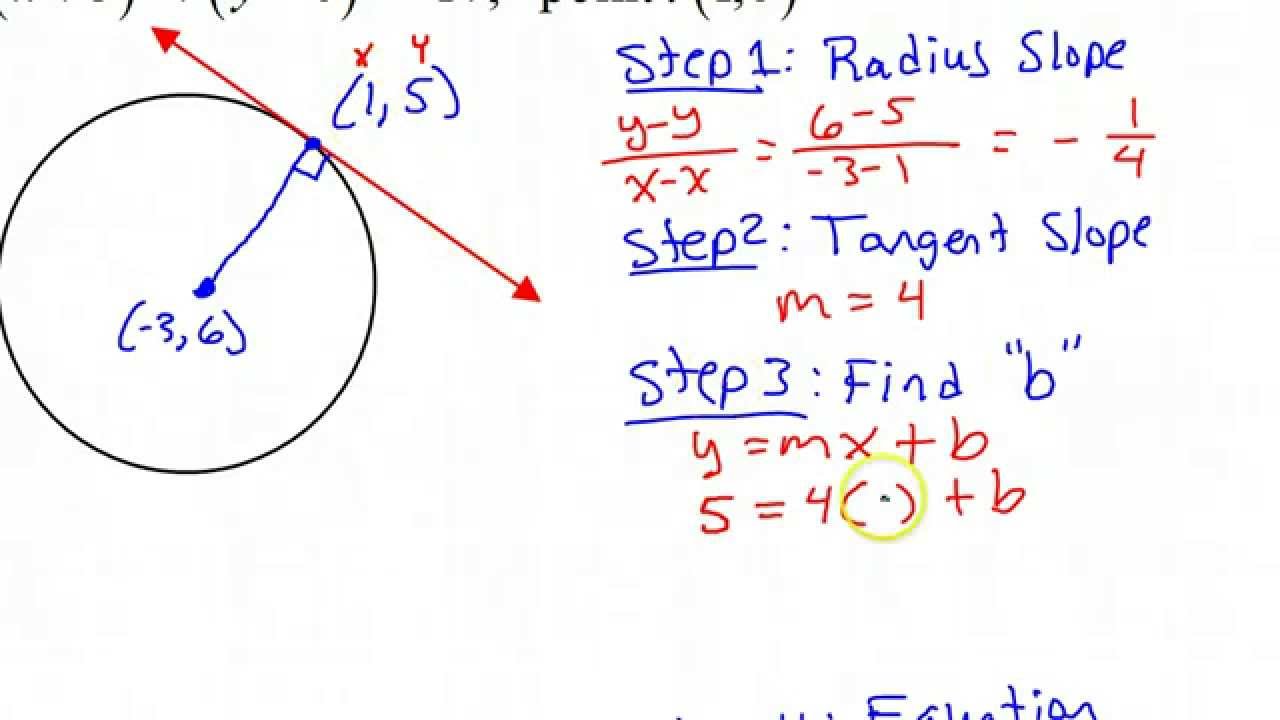 point: (1,5)
x y
(1, 5)
(-3, 6)
Step 1: Radius Slope
y-y / x-x = 6-5 / -3-1 = - 1/4
Step 2: Tangent Slope
m = 4
Step 3: Find "b"
y = mx + b
5 = 4( ) + b
Equation